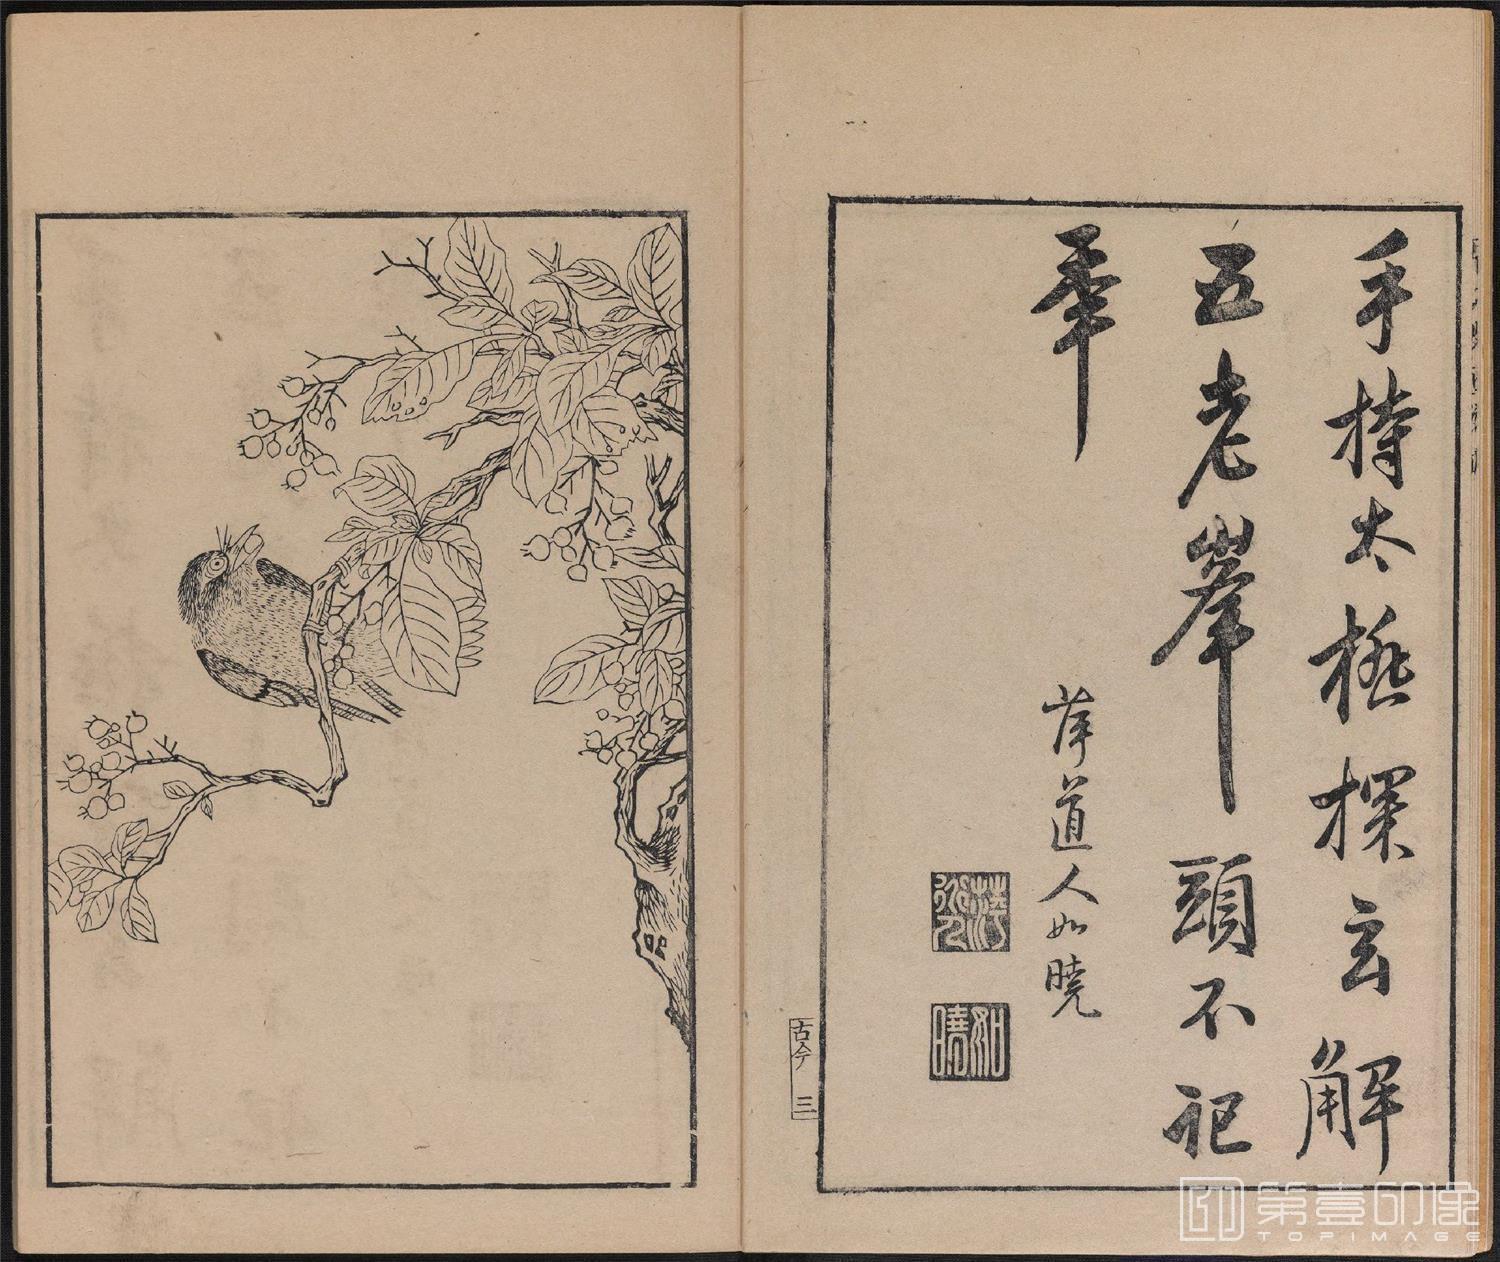 手持太極探玄解
五老峯頭不記
年
道人如曉
如曉
古今 三
第壹印像
TOPIMAGE